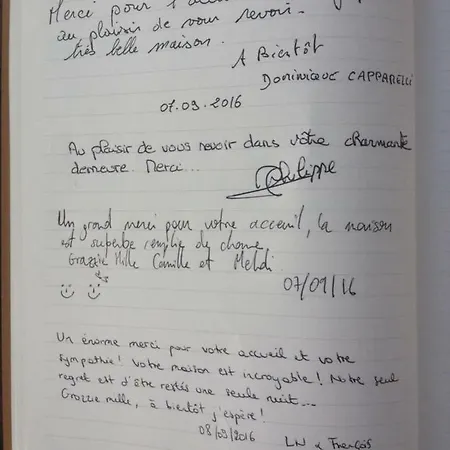 Merci pour l'
au plaisir de vous revoir.
très belle maison.
A Bientôt
Dominique CAPPARELLI
07.09.2016
Au plaisir de vous revoir dans vôtre charmante
demeure. Merci...
Philippe
Un grand merci pour votre acceuil, la maison
est superbe remplie de charme
Grazzie Mille Camille et Mehdi
07/09/16
Un énorme merci pour votre accueil et votre
sympathie! Votre maison est incroyable! Notre seul
regret est d'être restés une seule nuit...
Grazzie mille, à bientôt j'espère!
08/09/2016
LN & François